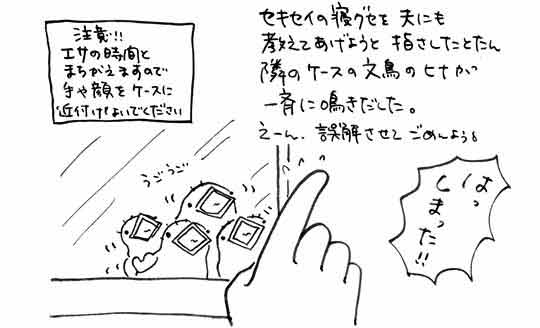 注意!!!
エサの時間と
まちがえますので
手や顔をケースに
近付けないでください
セキセイの寝グセを夫にも
教えてあげようと指さしたとたん
隣のケースの文鳥のヒナが
一斉に鳴きだした。
えーん、誤解させてごめんよう。
うごうご
はっ
しまった!!